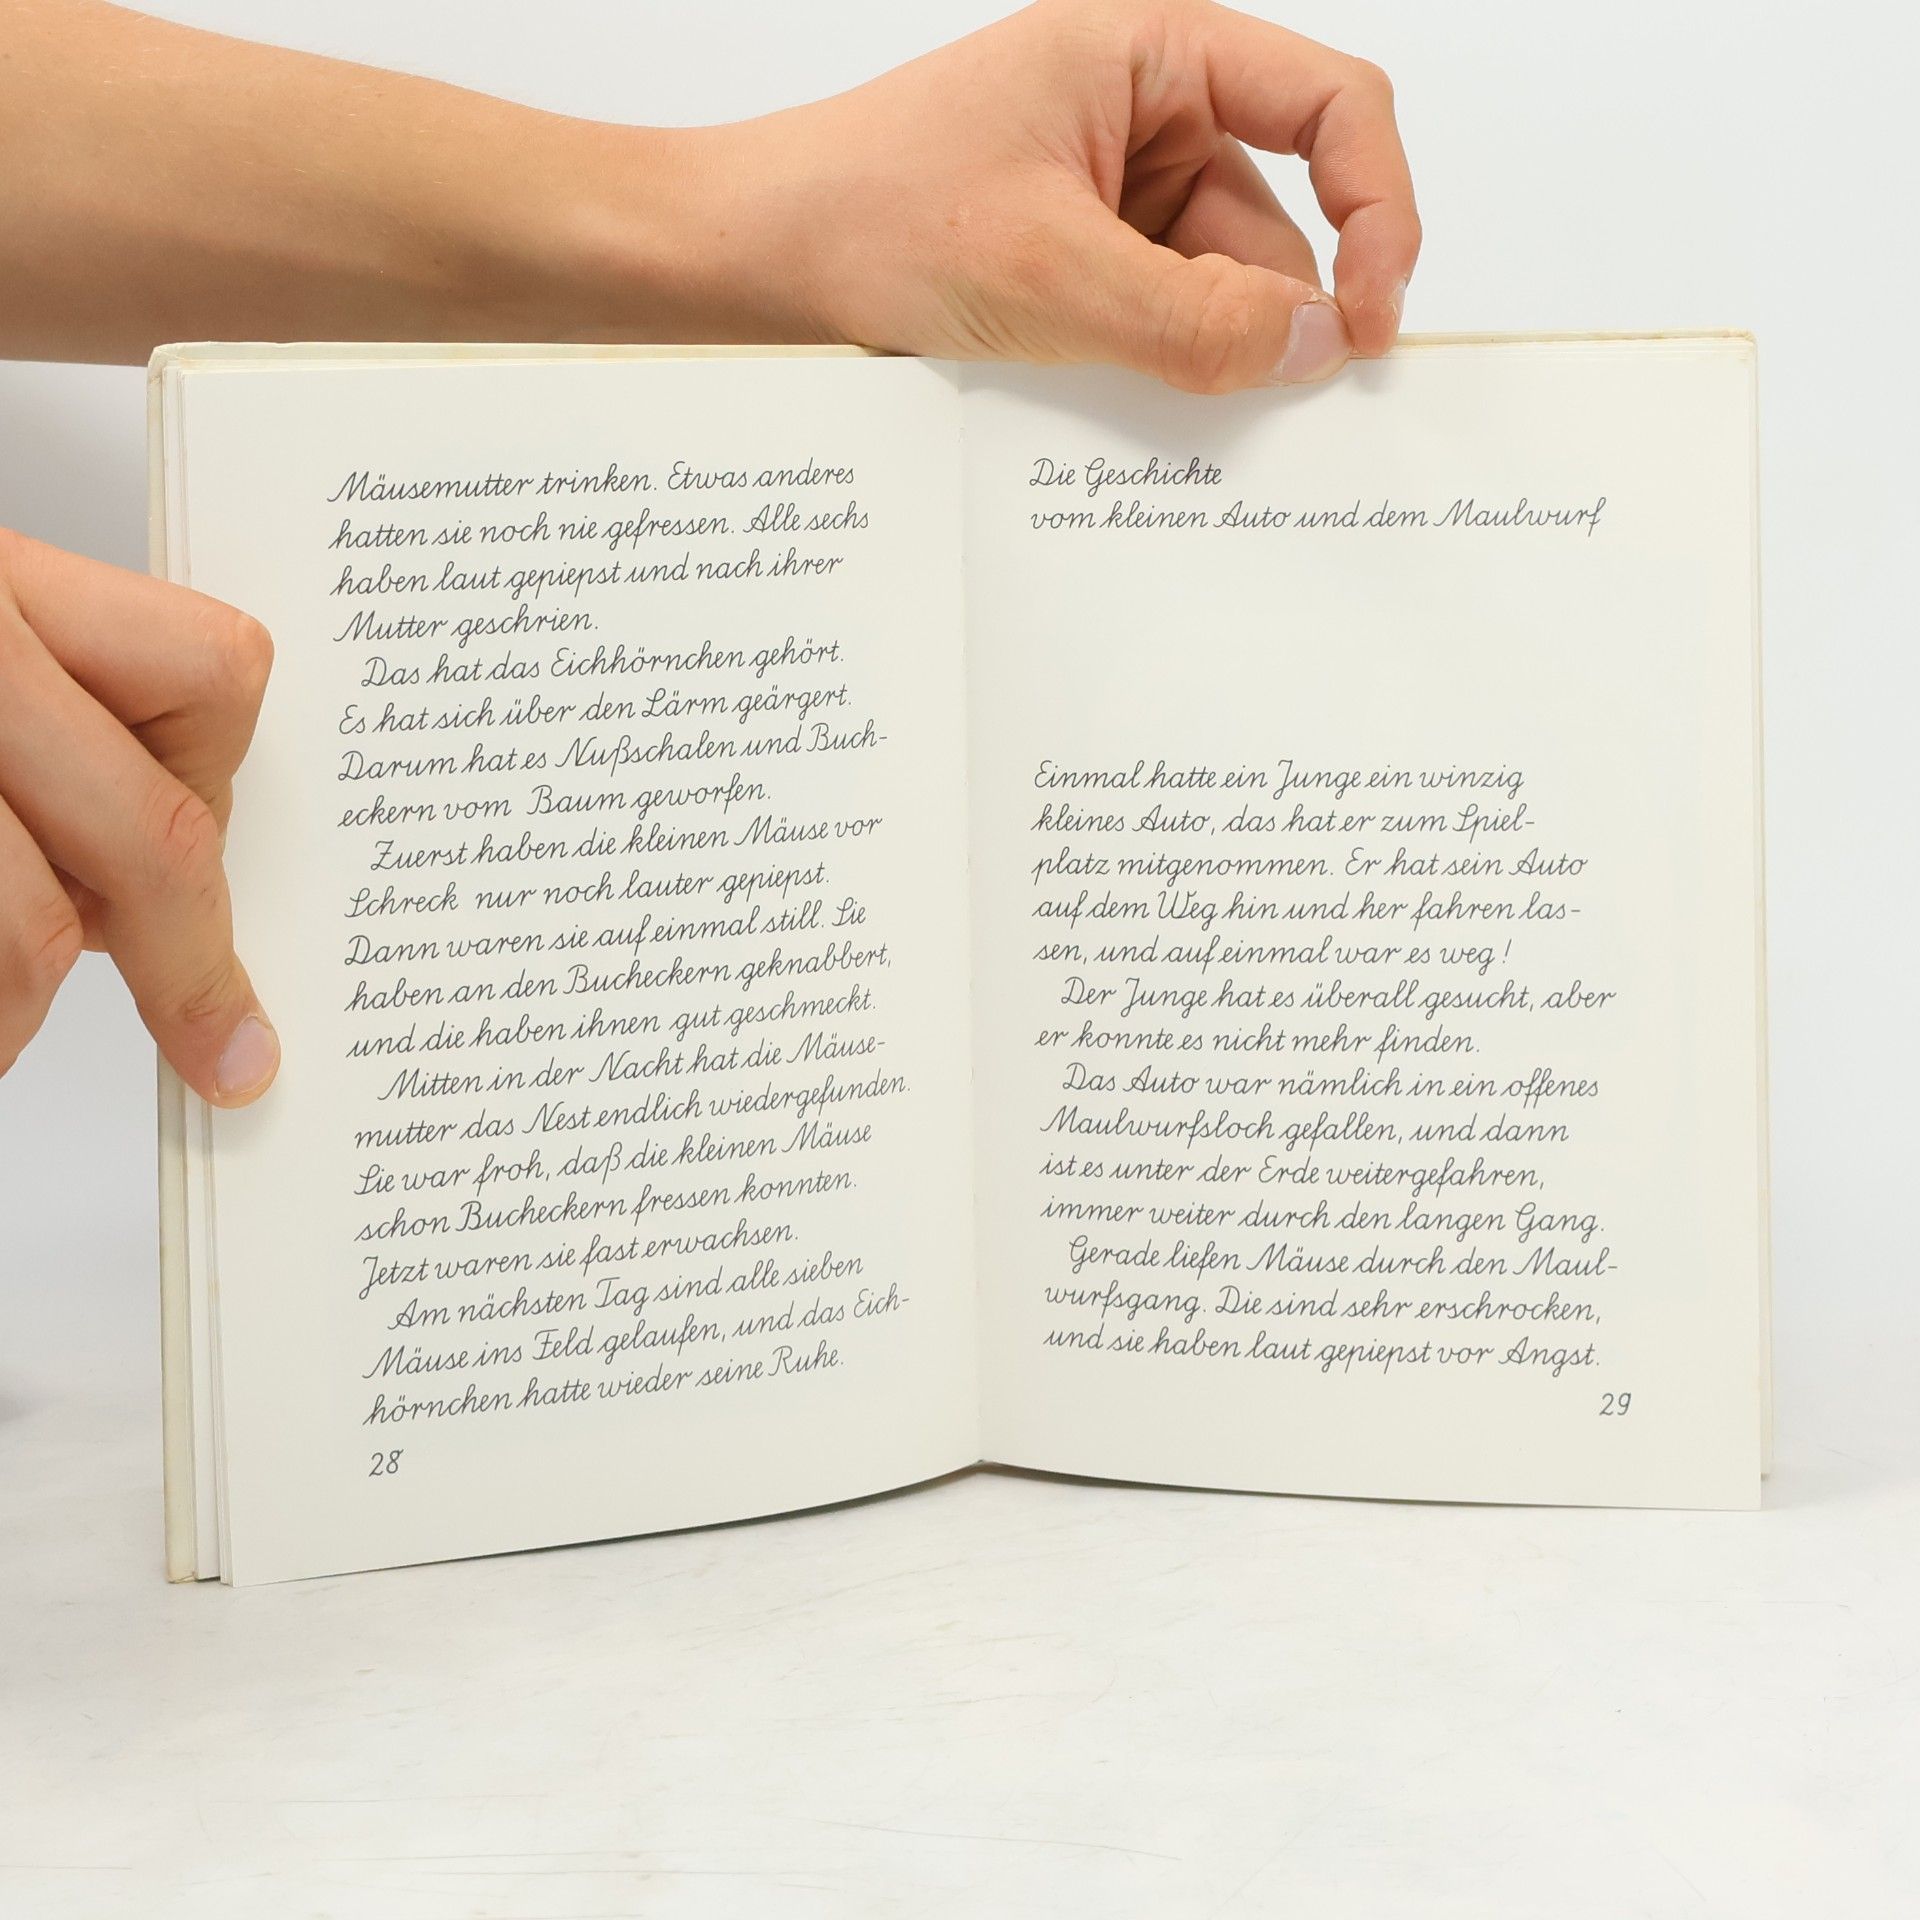 Mäusemutter trinken. Etwas anderes
hatten sie noch nie gefressen. Alle sechs
haben laut gepiepst und nach ihrer
Mutter geschrien.
Das hat das Eichhörnchen gehört.
Es hat sich über den Lärm geärgert.
Darum hat es Nußschalen und Buch-
eckern vom Baum geworfen.
Zuerst haben die kleinen Mäuse vor
Schreck nur noch lauter gepiepst.
Dann waren sie auf einmal still. Sie
haben an den Bucheckern geknabbert,
und die haben ihnen gut geschmeckt.
Mitten in der Nacht hat die Mäuse-
mutter das Nest endlich wiedergefunden.
Sie war froh, daß die kleinen Mäuse
schon Bucheckern fressen konnten.
Jetzt waren sie fast erwachsen.
Am nächsten Tag sind alle sieben
Mäuse ins Feld gelaufen, und das Eich-
hörnchen hatte wieder seine Ruhe.
28
Die Geschichte
vom kleinen Auto und dem Maulwurf
Einmal hatte ein Junge ein winzig
kleines Auto, das hat er zum Spiel-
platz mitgenommen. Er hat sein Auto
auf dem Weg hin und her fahren las-
sen, und auf einmal war es weg!
Der Junge hat es überall gesucht, aber
er konnte es nicht mehr finden.
Das Auto war nämlich in ein offenes
Maulwurfsloch gefallen, und dann
ist es unter der Erde weitergefahren,
immer weiter durch den langen Gang.
Gerade liefen Mäuse durch den Maul-
wurfsgang. Die sind sehr erschrocken,
und sie haben laut gepiepst vor Angst.
29